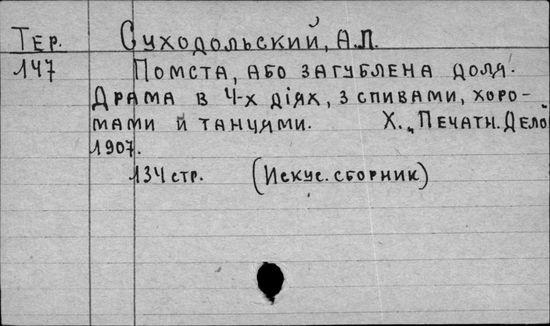 Тер. Суходольский, А.Л.
147 Помста, або загублена доля.
Драма в 4-х діях, з спивами, хоро-
мами й танцями. Х. „Печатн. Дело
1907.
134 стр. (Искус. сборник)